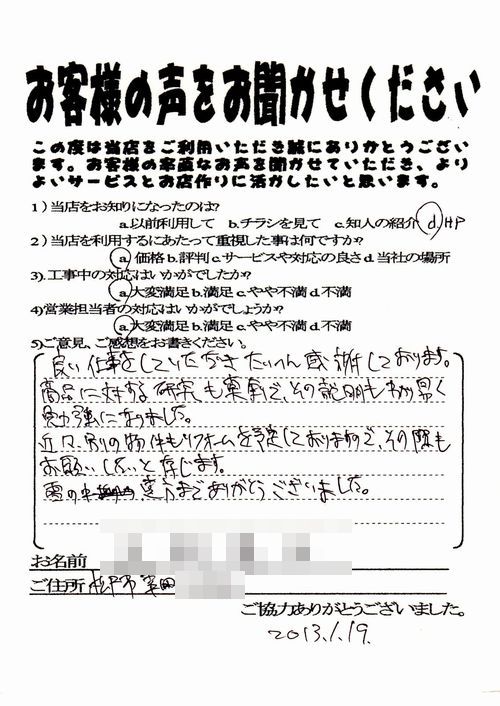 お客様の声をお聞かせください
この度は当店をご利用いただき誠にありがとうござい
ます。お客様の率直なお声を聞かせていただき、より
よいサービスとお店作りに活かしたいと思います。
1）当店をお知りになったのは?
a.以前利用して b.チラシを見て c.知人の紹介 d.HP
2）当店を利用するにあたって重視した事は何ですか?
a.価格 b.評判 c.サービスや対応の良さ d.当社の場所
3).工事中の対応はいかがでしたか?
a.大変満足 b.満足 c.やや不満 d.不満
4)営業担当者の対応はいかがでしょうか?
a.大変満足 b.満足 c.やや不満 d.不満
5)ご意見、ご感想をお書きください。
良い仕事をしていただきたいへん感謝しております。
商品に対する研究も熱心で、その説明もわかり易く
勉強になりました。
近々、別の物件もリフォームを予定しておりますので、その際も
お願いしたいと存じます。
雪の中 遠方までありがとうございました。
お名前
ご住所 松戸市
ご協力ありがとうございました。
2013.1.19.